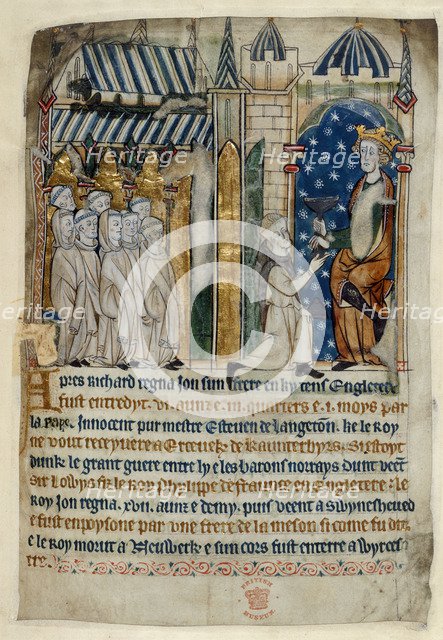 Heritage Heritage Heritage
Heritage Heritage Heritage
Heritage Heritage Heritage
Apres Richard regna Jon sun frere en ky tens Engletere
fust entredyt. vi. aunz. iii. quarters e. i. moys par
la Pape Innocent pur mestre Estevene de Langeton. ke le Roy
ne vout receyvere a Erceuek de Kaunterbyrs. Si
dunk le grant guere entre ly e les barons norrays dunt veent
Sir Lowys fiz le Roy Phelippe de fraunce en Engletere: le
Roy Jon regna. xvii. aunz e demy, puis veent a Swynesheued
e fust enpoysone par une frere de la meson si come fu dit.
e le Roy morut a Neuwerk e sun cors fust enterre a Wyrces
tre.
BRITISH
MUSEUM